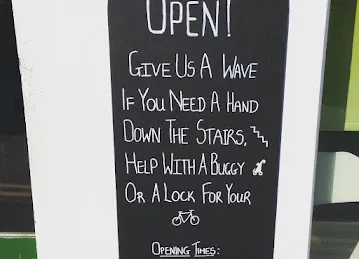 OPEN!
GIVE US A WAVE
IF YOU NEED A HAND
DOWN THE STAIRS,
HELP WITH A BUGGY
OR A LOCK FOR YOUR
OPENING TIMES: